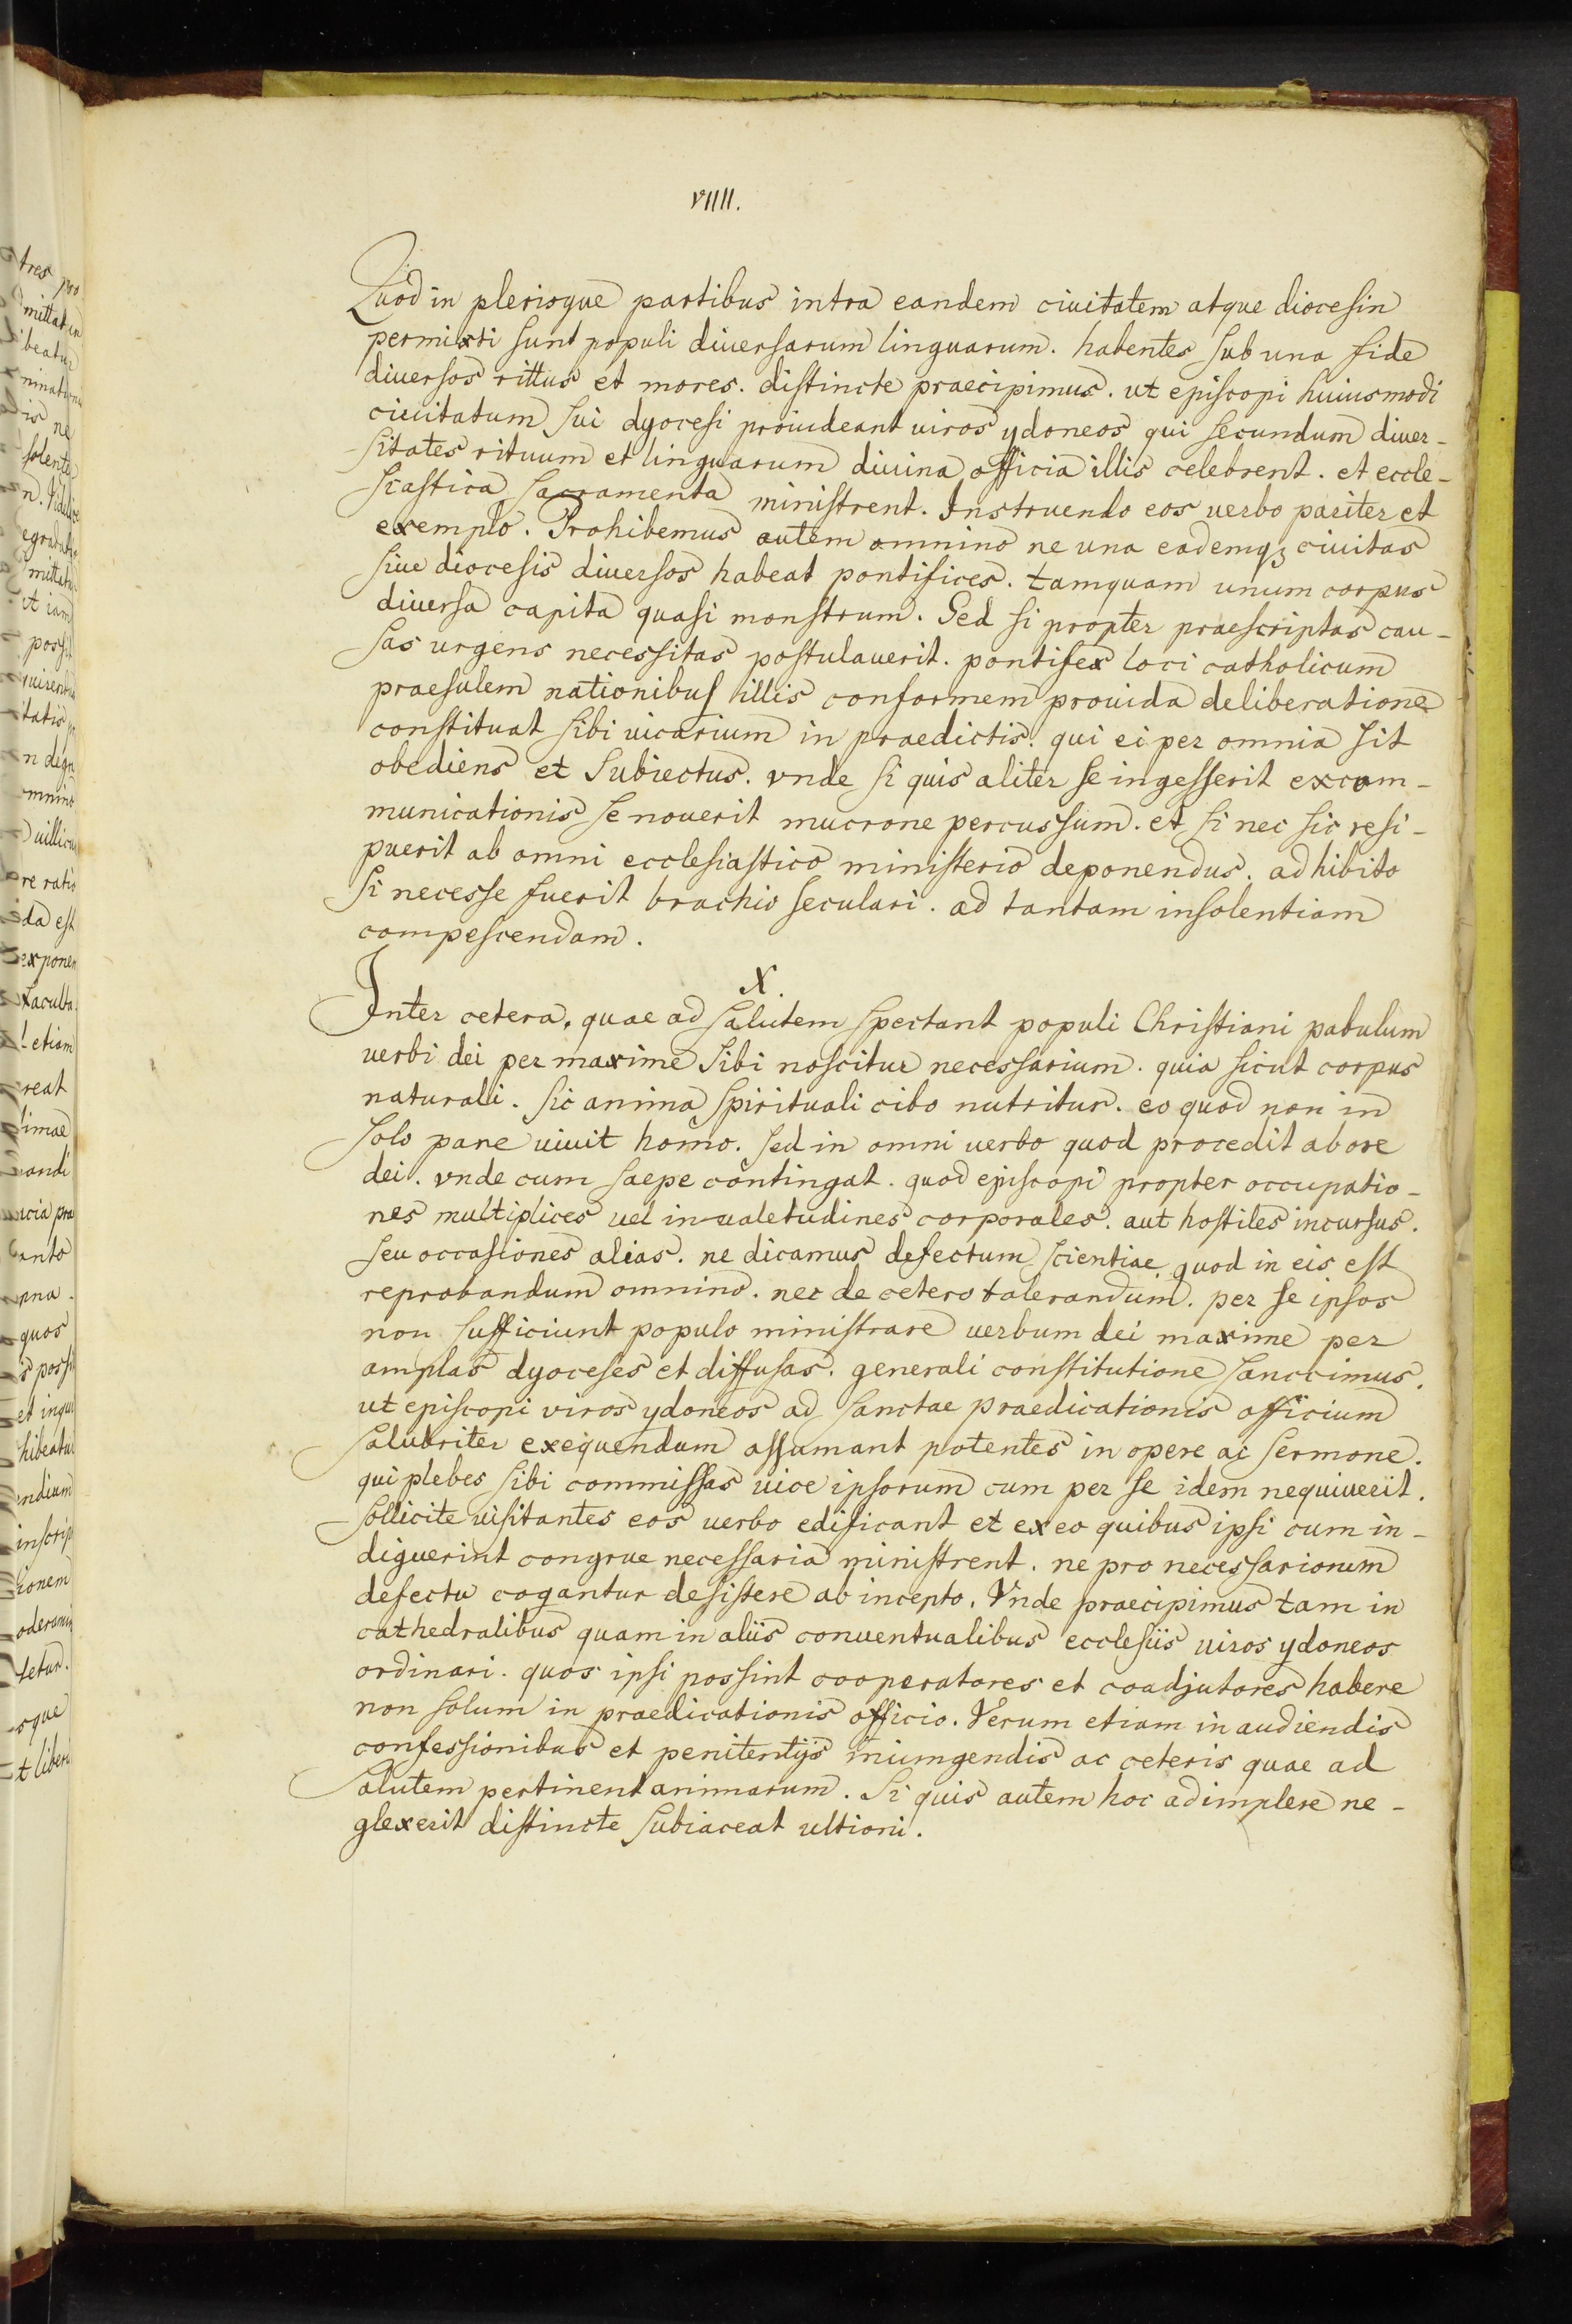 VIIII.
Quod in plerisque partibus intra eandem ciuitatem atque diocesin
permixti sunt populi diuersarum linguarum. habentes sub una fide
diuersos rittus et mores. distincte praecipimus. ut episcopi huiusmodi
ciuitatum sui dyocesi prouideant uiros ydoneos qui secundum diuer-
sitates rituum et linguarum diuina officia illis celebrent. et eccle-
siastica sacramenta ministrent. Instruendo eos uerbo pariter et
exemplo. Prohibemus autem omnino ne una eademqꝫ ciuitas
siue diocesis diuersos habeat pontifices. tamquam unum corpus
diuersa capita quasi monstrum. Sed si propter praescriptas cau-
sas urgens necessitas postulauerit. pontifex loci catholicum
praesulem nationibus illis conformem prouida deliberatione
constituat sibi uicarium in praedictis. qui ei per omnia sit
obediens et subiectus. vnde si quis aliter se ingesserit excom-
municationis se nouerit mucrone percussum. et si nec sic resi-
puerit ab omni ecclesiastico ministerio deponendus. adhibito
si necesse fuerit brachio seculari. ad tantam insolentiam
compescendam.
X.
Inter cetera, quae ad salutem spectant populi Christiani pabulum
uerbi dei per maxime sibi noscitur necessarium. quia sicut corpus
naturali. sic anima spirituali cibo nutritur. eo quod non in
solo pane uiuit homo. sed in omni uerbo quod procedit ab ore
dei. vnde cum saepe contingat. quod episcopi propter occupatio-
nes multiplices uel inualetudines corporales. aut hostiles incursus.
seu occasiones alias. ne dicamus defectum scientiae quod in eis est
reprobandum omnino. nec de cetero tolerandum. per se ipsos
non sufficiunt populo ministrare uerbum dei maxime per
amplas dyoceses et diffusas. generali constitutione sanccimus.
ut episcopi viros ydoneos ad sanctae praedicationis officium
salubriter exequendum assumant potentes in opere ac sermone.
qui plebes sibi commissas uice ipsorum cum per se idem nequiuerit.
sollicite uisitantes eos uerbo edificant et ex eo quibus ipsi cum in-
diguerint congrue necessaria ministrent. ne pro necessariorum
defectu cogantur desistere ab incepto. Vnde praecipimus tam in
cathedralibus quam in aliis conuentualibus ecclesiis uiros ydoneos
ordinari. quos ipsi possint cooperatores et coadjutores habere
non solum in praedicationis officio. Verum etiam in audiendis
confessionibus et penitentijs iniumgendis ac ceteris quae ad
salutem pertinent animarum. Si quis autem hoc adimplere ne-
glexerit distincte subiaceat ultioni.